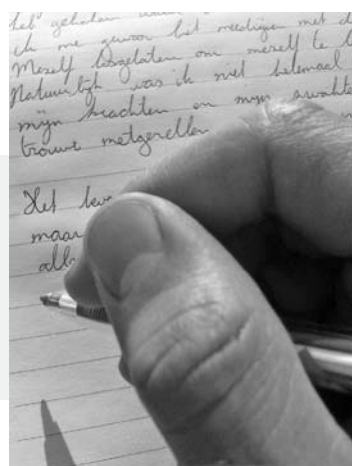 ik me gewoon het meedrijven met d
Mezelf losgelaten om mezelf te
Natuurlijk was ik niet helemaal
mijn krachten en mijn zwakte
trouwe metgezellen
Het leve
maar
all